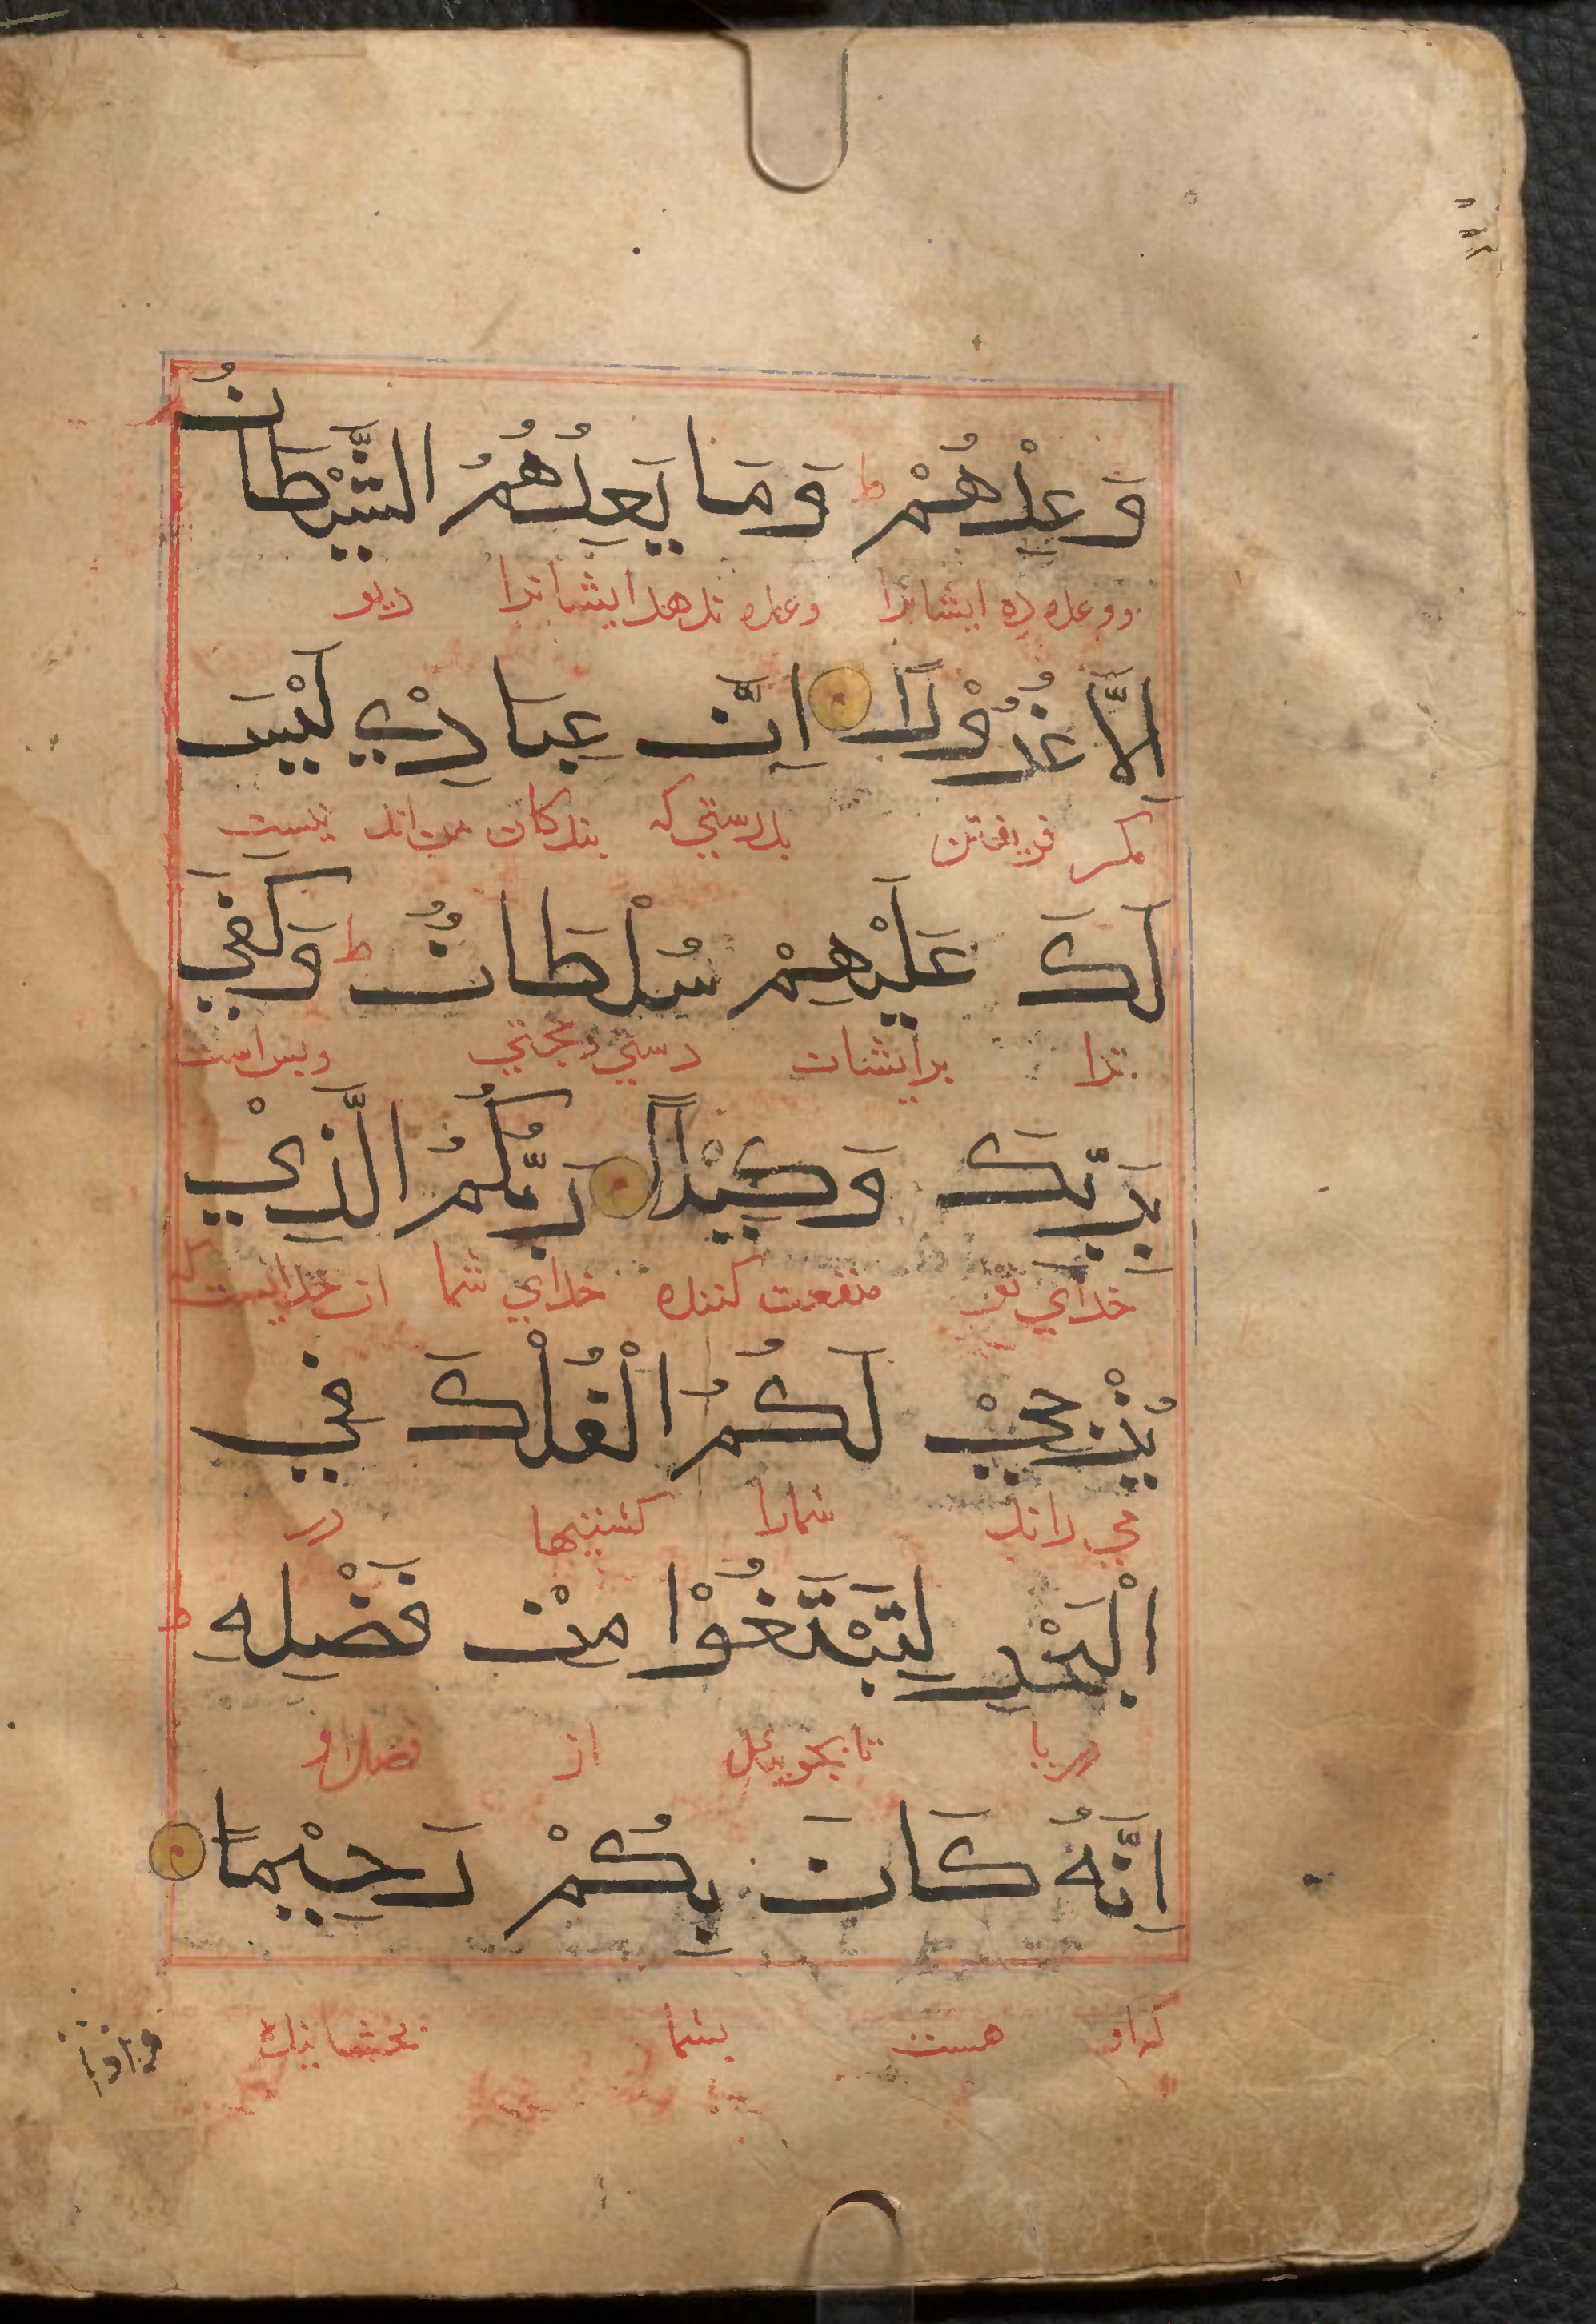 وَعِدْهُمْ ط وَمَا يَعِدُهُمُ الشَّيْطَانُ
ووعده ده ایشانرا وعده ندهد ایشانرا دیو
اِلَّا غُرُوْرًا اِنَّ عِبَادِيْ لَيْسَ
مکر فریفتن بدرستی که بندکان من اند نیست
لَكَ عَلَيْهِمْ سُلْطَانٌ ط وَكَفٰي
ترا برایشان دستی و حجتی وبس است
بِرَبِّكَ وَكِيْلًا رَبُّكُمُ الَّذِيْ
خدای تو منفعت کننده خدای شما ان خدایست که
يُزْجِيْ لَكُمُ الْفُلْكَ فِي
می راند شمارا کشتیها در
الْبَحْرِ لِتَبْتَغُوْا مِنْ فَضْلِهِ ط
دریا تا بجویید از فضل او
اِنَّهُ كَانَ بِكُمْ رَحِيْمًا
که او هست بشما بخشاینده
واذا